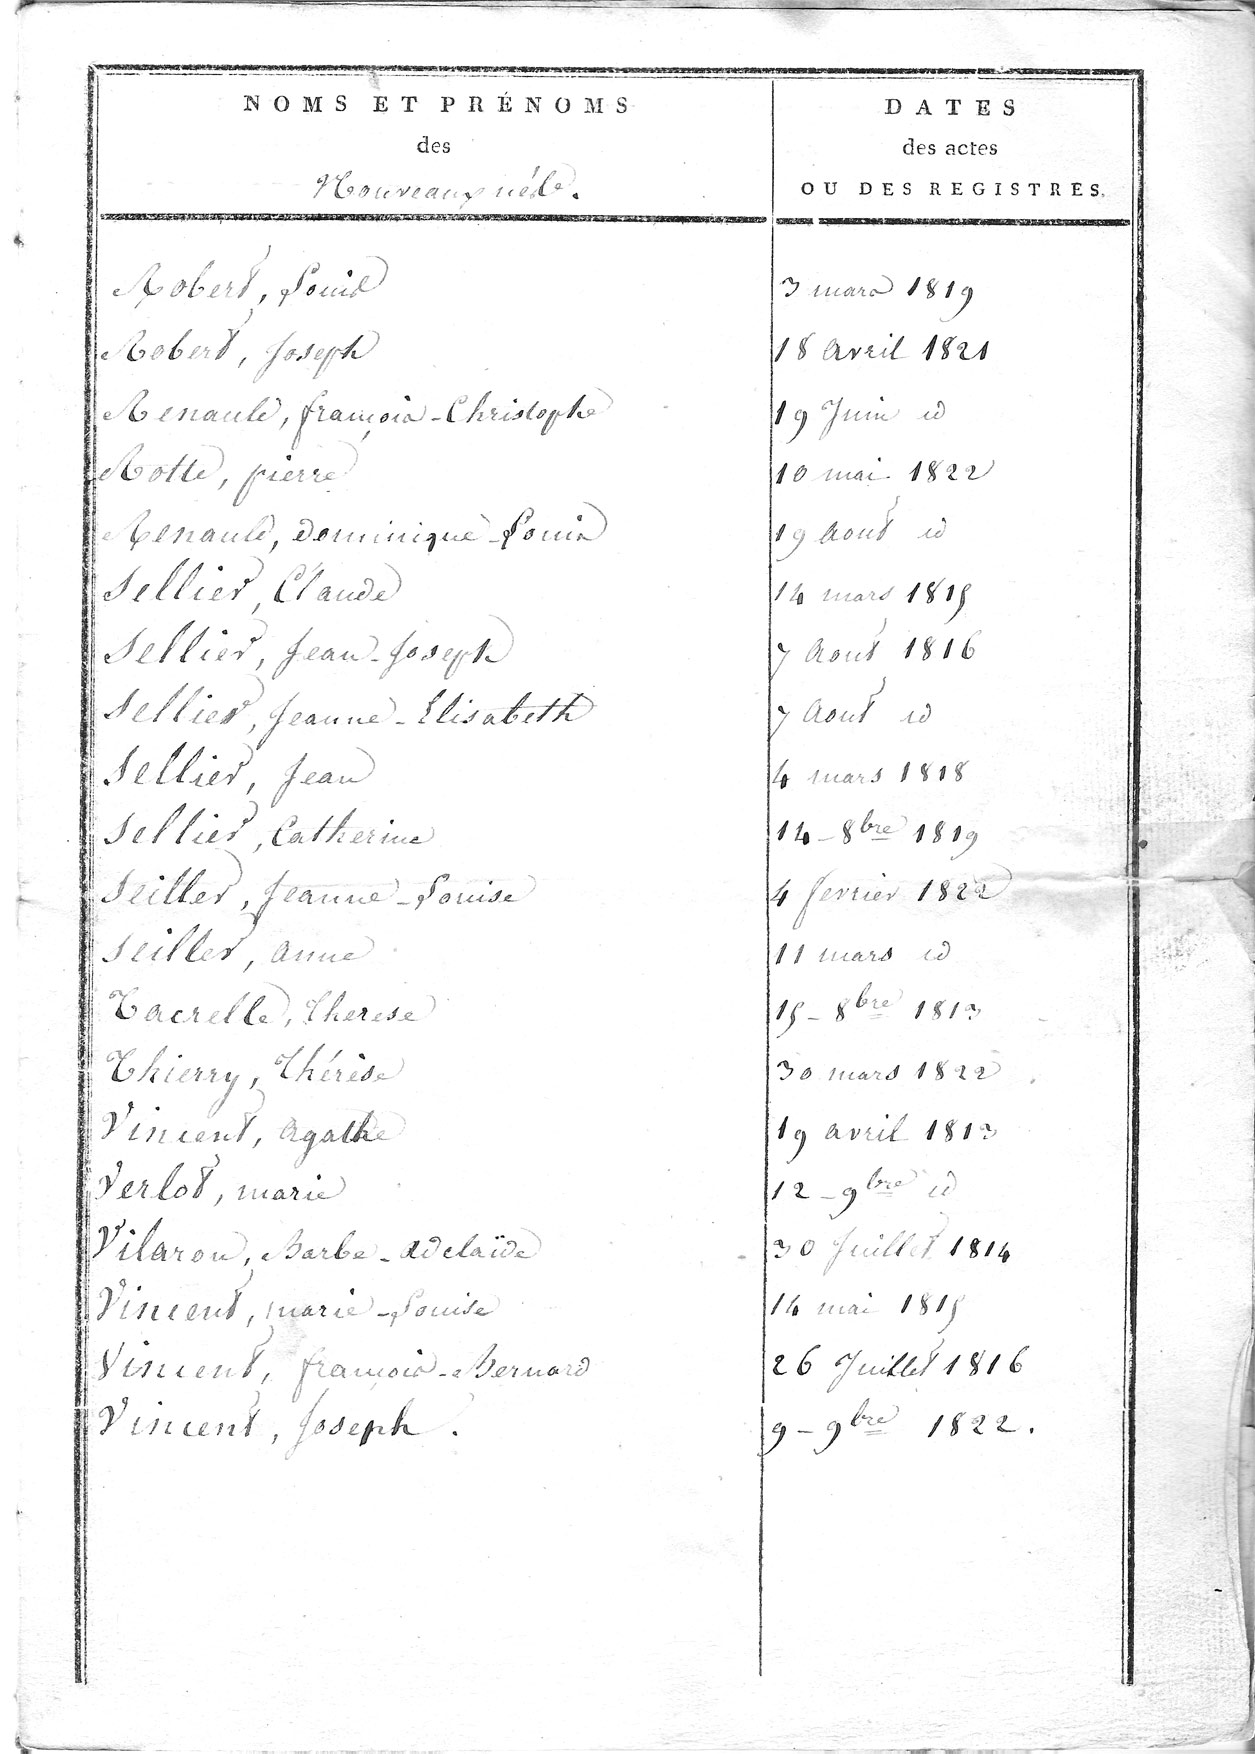 NOMS ET PRÉNOMS
des
Nouveaux nés.
DATES
des actes
OU DES REGISTRES.
Robert, Louis 3 mars 1819
Robert, Joseph 18 avril 1821
Renauld, françois-Christophe 19 Juin id
Rotte, pierre 10 mai 1822
Renauld, Dominique-Louis 19 Aout id
Sellier, Claude 14 mars 1815
Sellier, Jean-Joseph 7 Aout 1816
Sellier, Jeanne-Elisabeth 7 Aout id
Sellier, Jean 4 mars 1818
Sellier, Catherine 14-8bre 1819
Seiller, Jeanne-Louise 4 fevrier 1822
Seiller, anne 11 mars id
Tacrelle, Therese 15-8bre 1813
Thierry, Thérèse 30 mars 1822
Vincent, Agathe 19 avril 1813
Verlot, marie 12-9bre id
Vilaron, Barbe-Adelaïde 30 Juillet 1814
Vincent, marie-Louise 14 mai 1815
Vincent, françois-Bernard 26 Juillet 1816
Vincent, Joseph. 9-9bre 1822.